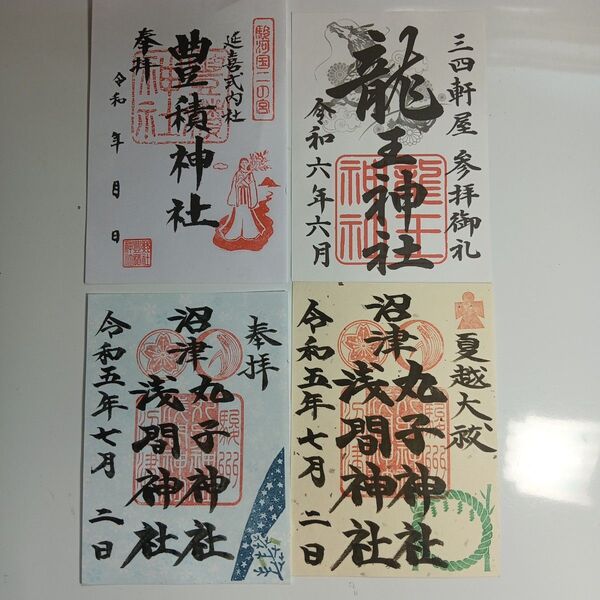 駿河国二の宮
延喜式内社
豊積神社
奉拝
令和 年 月 日
三四軒屋 参拝御礼
龍王神社
令和六年六月
奉拝
沼津 丸子神社
浅間神社
令和五年七月二日
夏越大祓
沼津 丸子神社
浅間神社
令和五年七月二日